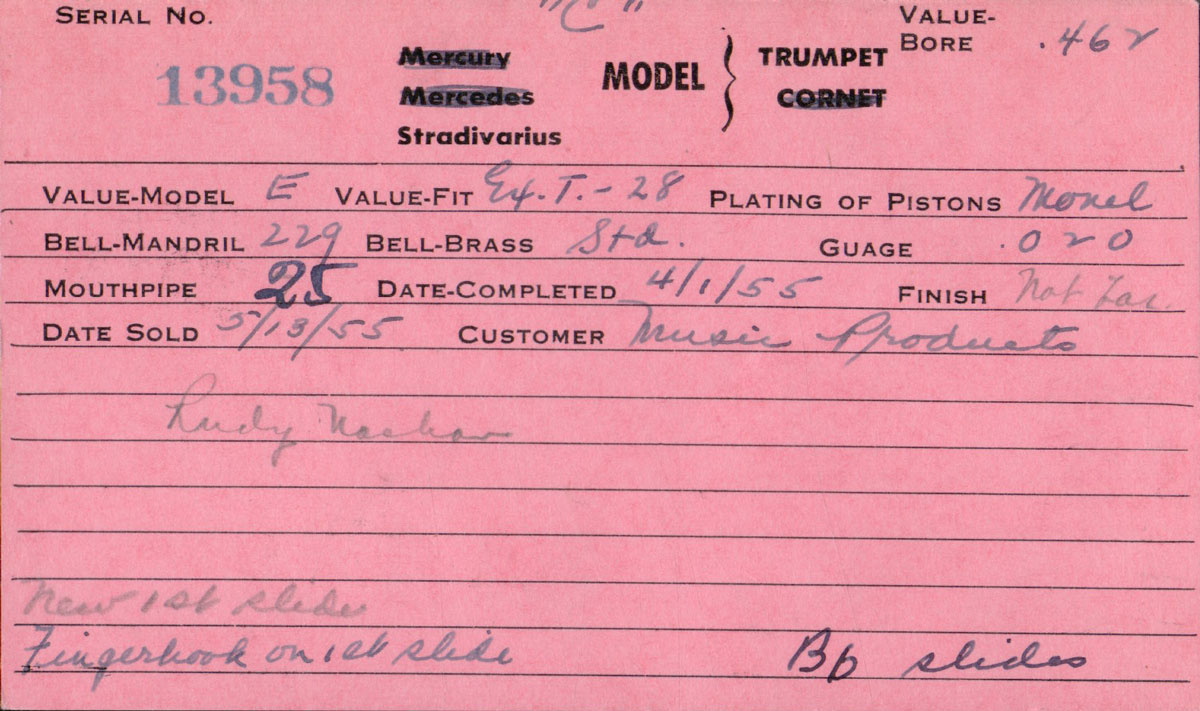 SERIAL NO. "C" VALUE-BORE .462
13958 Mercury MODEL } TRUMPET
Mercedes CORNET
Stradivarius
VALUE-MODEL E VALUE-FIT Ex.T.-28 PLATING OF PISTONS Monel
BELL-MANDRIL 229 BELL-BRASS Std. GUAGE .020
MOUTHPIPE 25 DATE-COMPLETED 4/1/55 FINISH Not Lac.
DATE SOLD 5/13/55 CUSTOMER Music Products
Rudy
New 1st slide
Fingerhook on 1st slide Bb slides